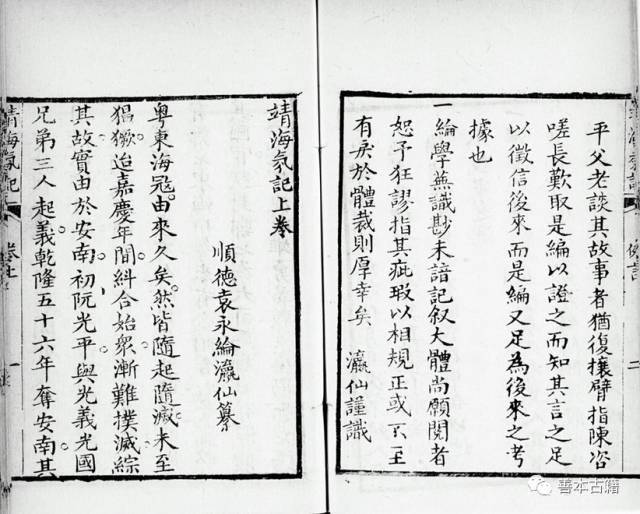 平父老談其故事者猶復攘臂指陳咨
嗟長歎取是編以證之而知其言之足
以徵信後來而是編又足為後來之考
據也
一綸學蕪識尠未諳記叙大體尚願閱者
恕予狂謬指其疵瑕以相規正或不至
有戾於體裁則厚幸矣 瀛仙謹識
例言
二
靖海氛記上卷
順德袁永綸瀛仙纂
粵東海冦。由來久矣。然皆隨起隨滅。未至
猖獗。迨嘉慶年間。糾合始衆。漸難撲滅。綜
其故。實由於安南。初阮光平與光義光國
兄弟三人起義。乾隆五十六年奪安南其
靖海氛記
卷上
一
善本古籍